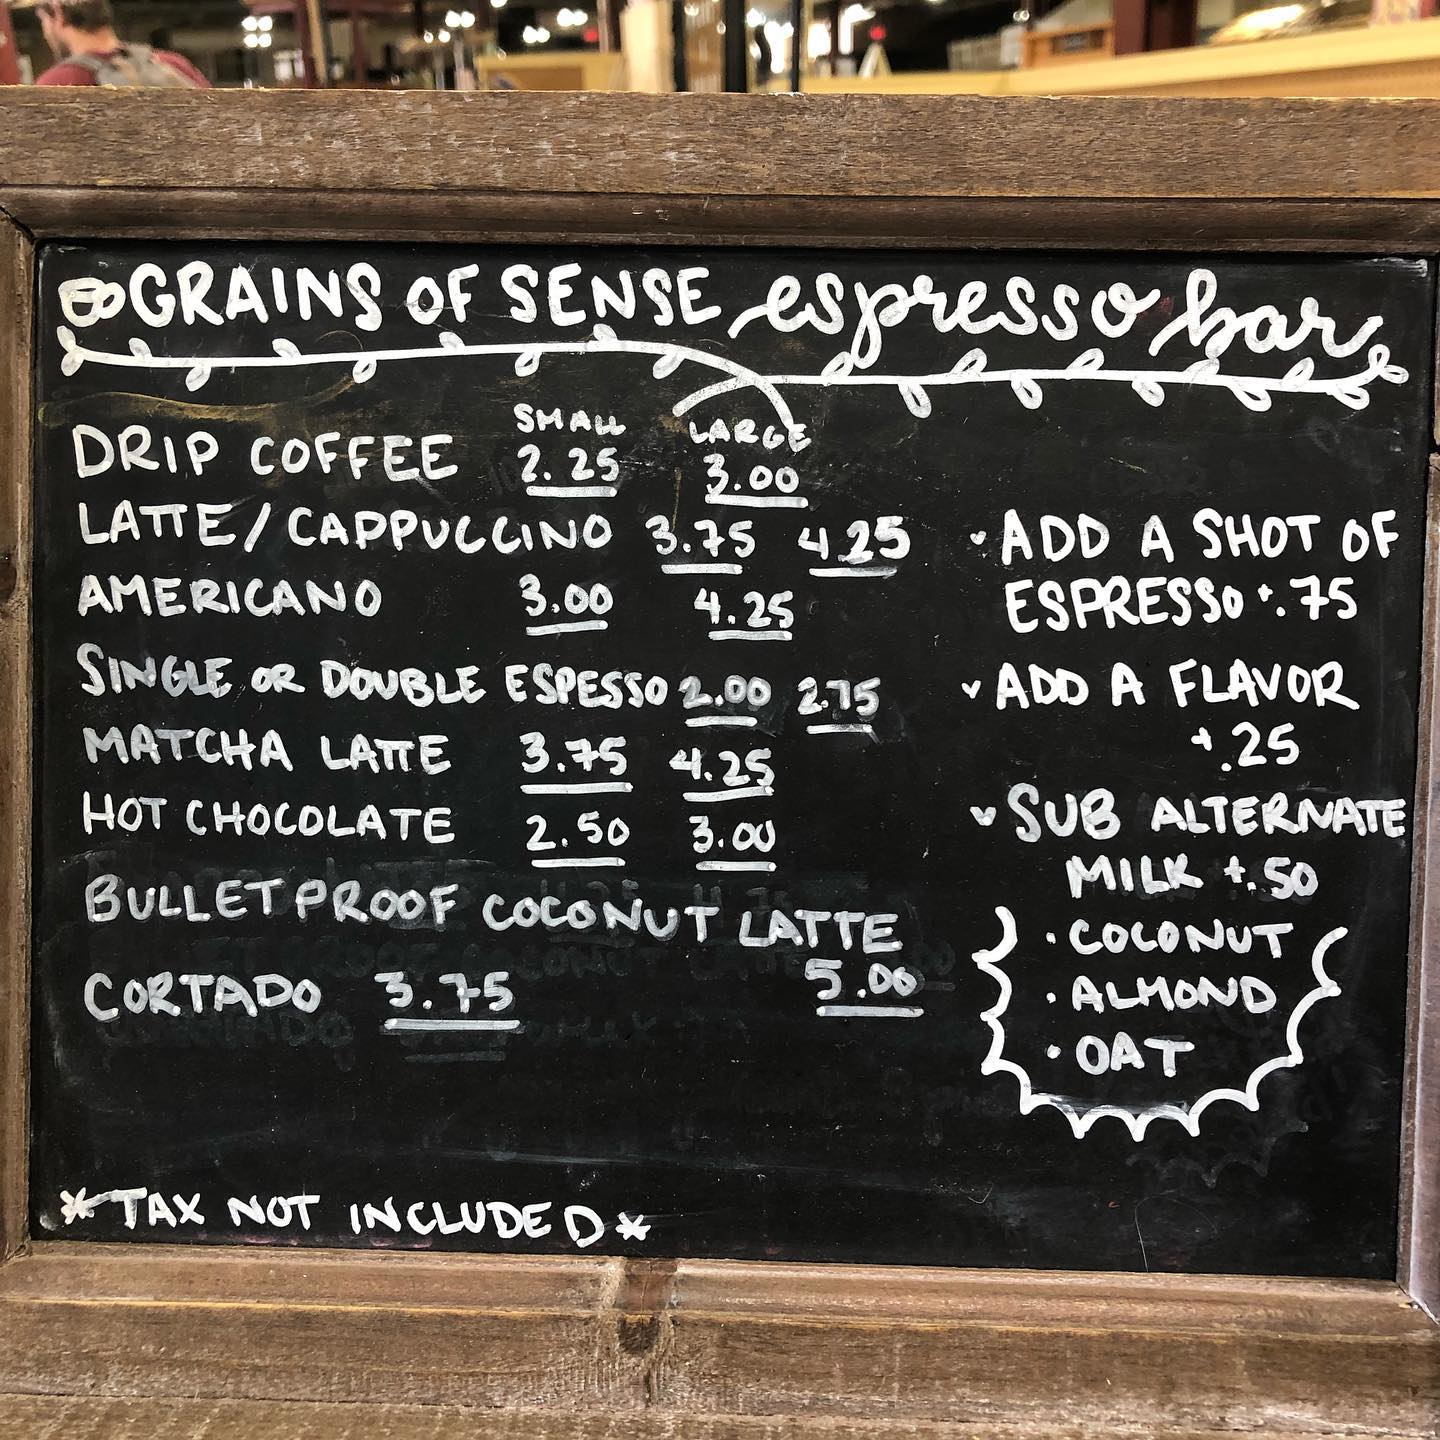 GRAINS OF SENSE espresso bar
SMALL LARGE
DRIP COFFEE 2.25 3.00
LATTE/CAPPUCCINO 3.75 4.25
AMERICANO 3.00 4.25
SINGLE OR DOUBLE ESPESSO 2.00 2.75
MATCHA LATTE 3.75 4.25
HOT CHOCOLATE 2.50 3.00
BULLETPROOF COCONUT LATTE
5.00
CORTADO 3.75
ADD A SHOT OF
ESPRESSO +.75
ADD A FLAVOR
+.25
SUB ALTERNATE
MILK +.50
· COCONUT
· ALMOND
· OAT
*TAX NOT INCLUDED*